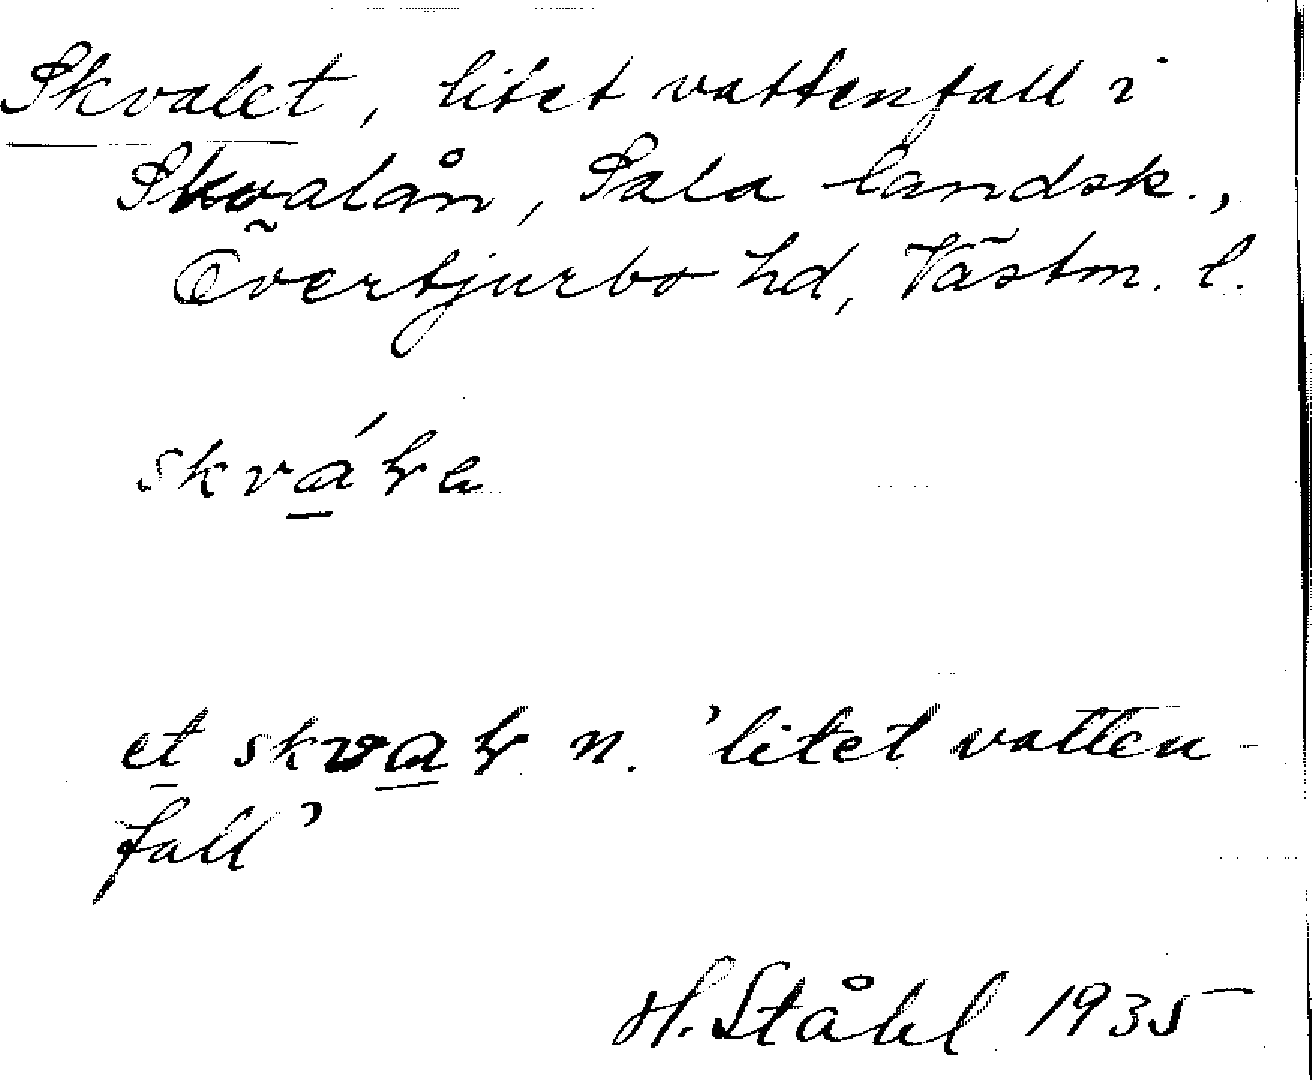 Skvalet, litet vattenfall i
Skvalån, Sala landsk.,
Övertjurbo hd, Västm. l.
et n. 'litet vatten-
fall'
H. Ståhl 1935